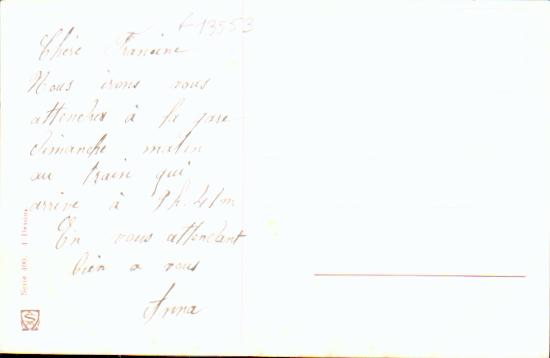 f 13553
Chère Francine
Nous irons vous
attendre à la gare
dimanche matin
au train qui
arrive à 9h. 41m
En vous attendant
bien a vous
Anna
Serie 490. 4 Dessins